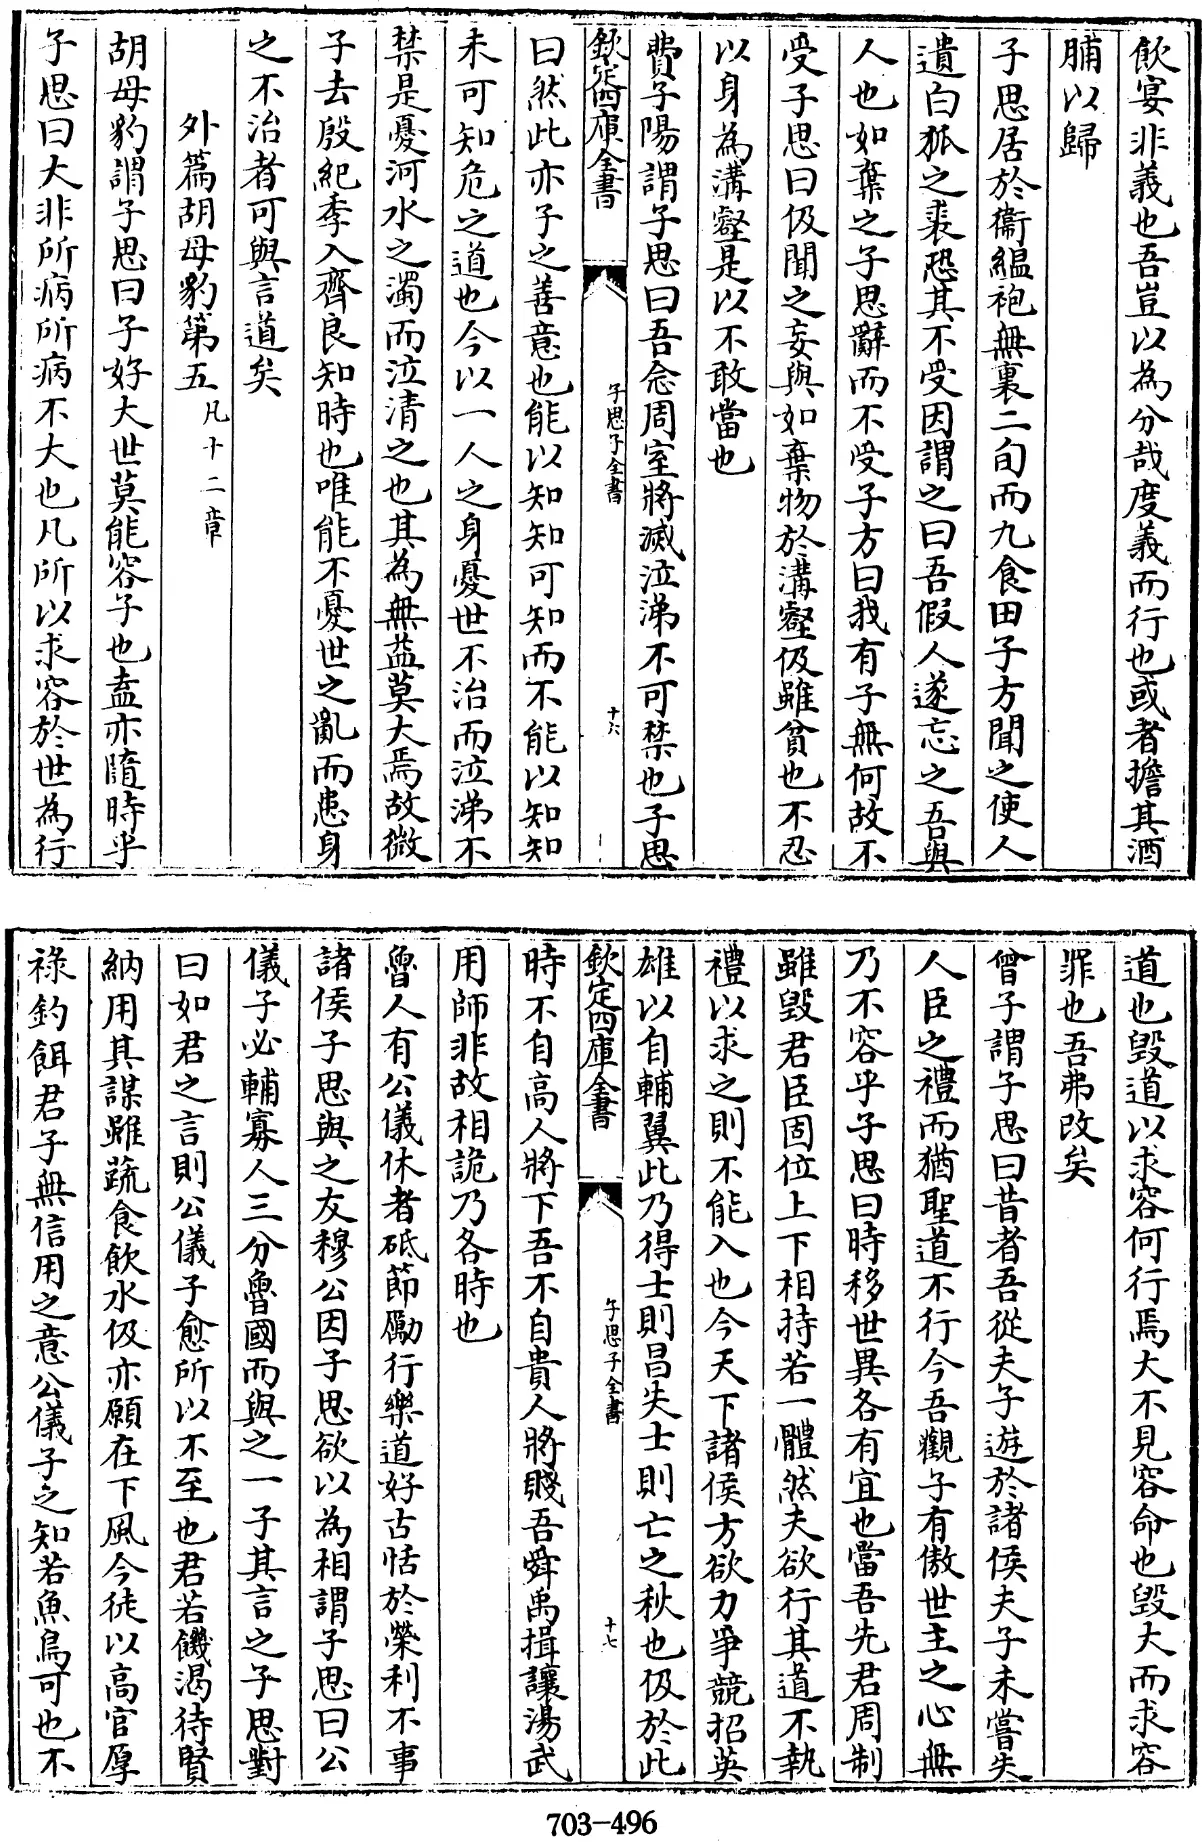 飲宴非義也吾豈以為分哉度義而行也或者擔其酒
脯以歸
子思居於衞緼袍無裏二旬而九食田子方聞之使人
遺白狐之裘恐其不受因謂之曰吾假人遂忘之吾與
人也如棄之子思辭而不受子方曰我有子無何故不
受子思曰伋聞之妄與如棄物於溝壑伋雖貧也不忍
以身為溝壑是以不敢當也
費子陽謂子思曰吾念周室將滅泣涕不可禁也子思
欽定四庫全書
子思子全書
十六
曰然此亦子之善意也能以知知可知而不能以知知
未可知危之道也今以一人之身憂世不治而泣涕不
禁是憂河水之濁而泣清之也其為無益莫大焉故微
子去殷紀季入齊良知時也唯能不憂世之亂而患身
之不治者可與言道矣
外篇胡母豹第五凡十二章
胡母豹謂子思曰子好大世莫能容子也盍亦隨時乎
子思曰大非所病所病不大也凡所以求容於世為行
道也毀道以求容何行焉大不見容命也毀大而求容
罪也吾弗改矣
曾子謂子思曰昔者吾從夫子遊於諸侯夫子未嘗失
人臣之禮而猶聖道不行今吾觀子有傲世主之心無
乃不容乎子思曰時移世異各有宜也當吾先君周制
雖毀君臣固位上下相持若一體然夫欲行其道不執
禮以求之則不能入也今天下諸侯方欲力爭競招英
雄以自輔翼此乃得士則昌失士則亡之秋也伋於此
欽定四庫全書
子思子全書
十七
時不自高人將下吾不自貴人將賤吾舜禹揖讓湯武
用師非故相詭乃各時也
魯人有公儀休者砥節勵行樂道好古恬於榮利不事
諸侯子思與之友穆公因子思欲以為相謂子思曰公
儀子必輔寡人三分魯國而與之一子其言之子思對
曰如君之言則公儀子愈所以不至也君若饑渴待賢
納用其謀雖蔬食飲水伋亦願在下風今徒以高官厚
祿釣餌君子無信用之意公儀子之知若魚鳥可也不
703-496